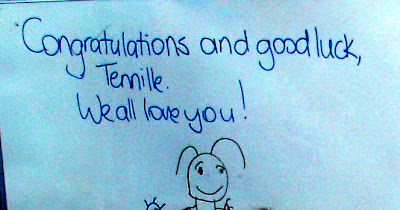 Congratulations and good luck,
Tennille.
We all love you!